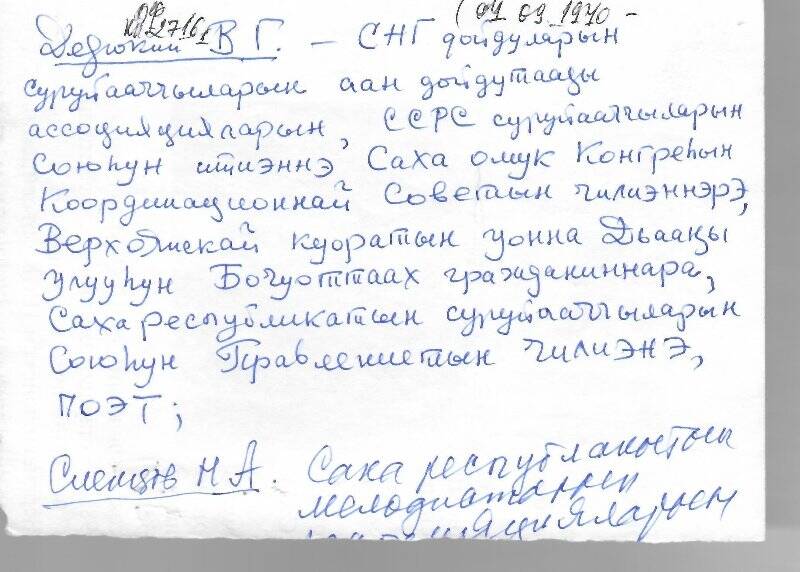 КП 27161 (04 09.1970 -
Дедюкин В Г. – СНГ дойдуларын
суруйааччыларын аан дойдутааҕы
ассоцияцияларын, ССРС суруйааччыларын
Союһун чилиэннэ, Саха омук Конгреһын
Координационнай Советын чилиэннэрэ,
Верхоянскай куоратын уонна Дьааҥы
Улууһун Бочуоттаах гражданиннара,
Саха республикатын суруйааччыларын
Союһун Правлениетын чилиэнэ,
ПОЭТ;
Слепцов Н А. Саха республикатын
мелодистарын